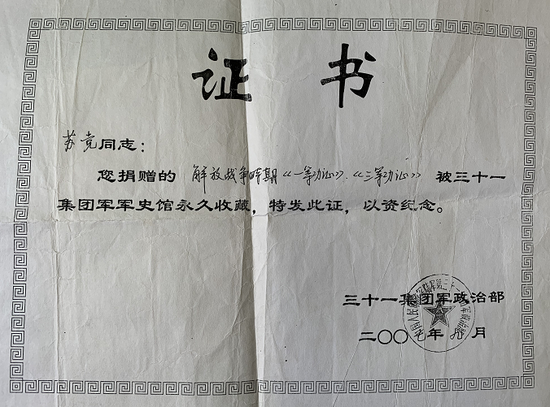 证书
苏竞同志：
您捐赠的 解放战争时期《一等功证》、《三等功证》被三十一
集团军军史馆永久收藏，特发此证，以资纪念。
三十一集团军政治部
二〇〇九年九月